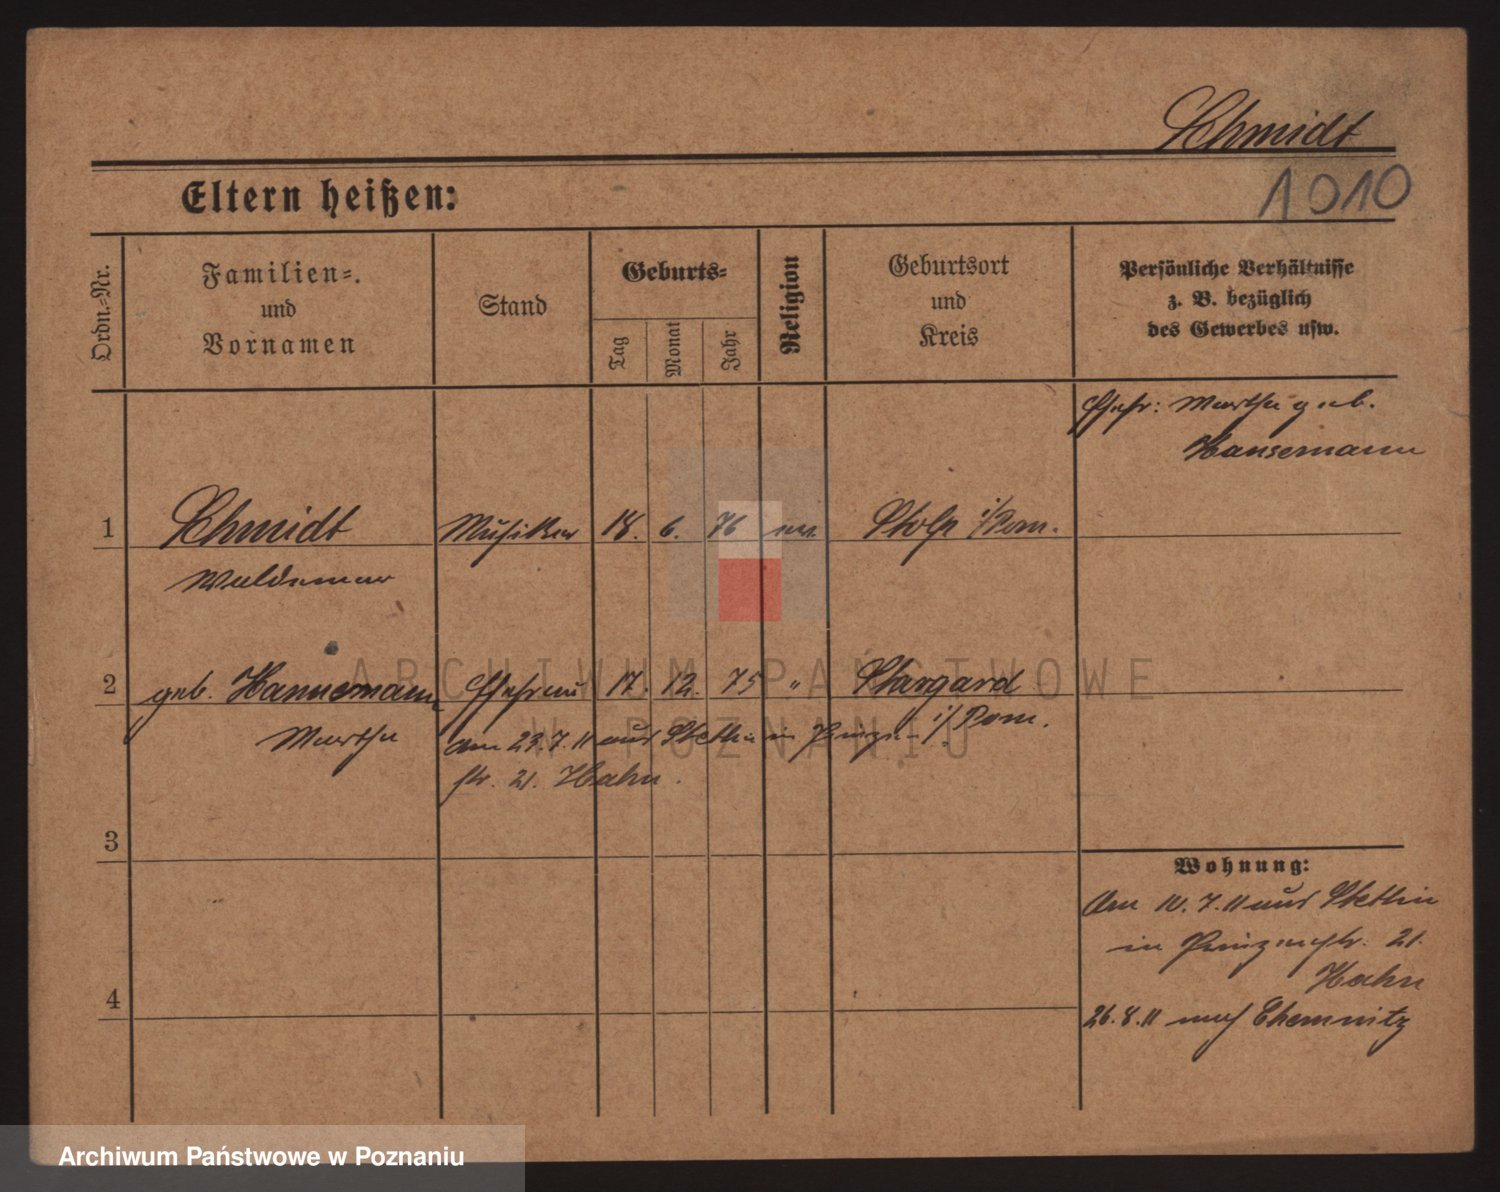 Schmidt
1010
Eltern heißen:
Ordn.=Nr.
Familien=
und
Vornamen
Stand
Geburts=
Tag
Monat
Jahr
Religion
Geburtsort
und
Kreis
Persönliche Verhältnisse
z. B. bezüglich
des Gewerbes usw.
Ehefr: Martha geb.
Hansemann
1 Schmidt Musiker 18. 6. 76 ev. Stolp i/Pom.
Waldemar
2 geb. Hannemann Ehefrau 17. 12. 75 " Stargard
i/Pom.
Martha am 23.7.11 aus Stettin in Prinzen-
str. 21. Hahn.
3
Wohnung:
Am 10.7.11 aus Stettin
in Prinzenstr. 21.
Hahn
4
26.8.11 nach Chemnitz
ARCHIWUM PAŃSTWOWE
W POZNANIU
Archiwum Państwowe w Poznaniu